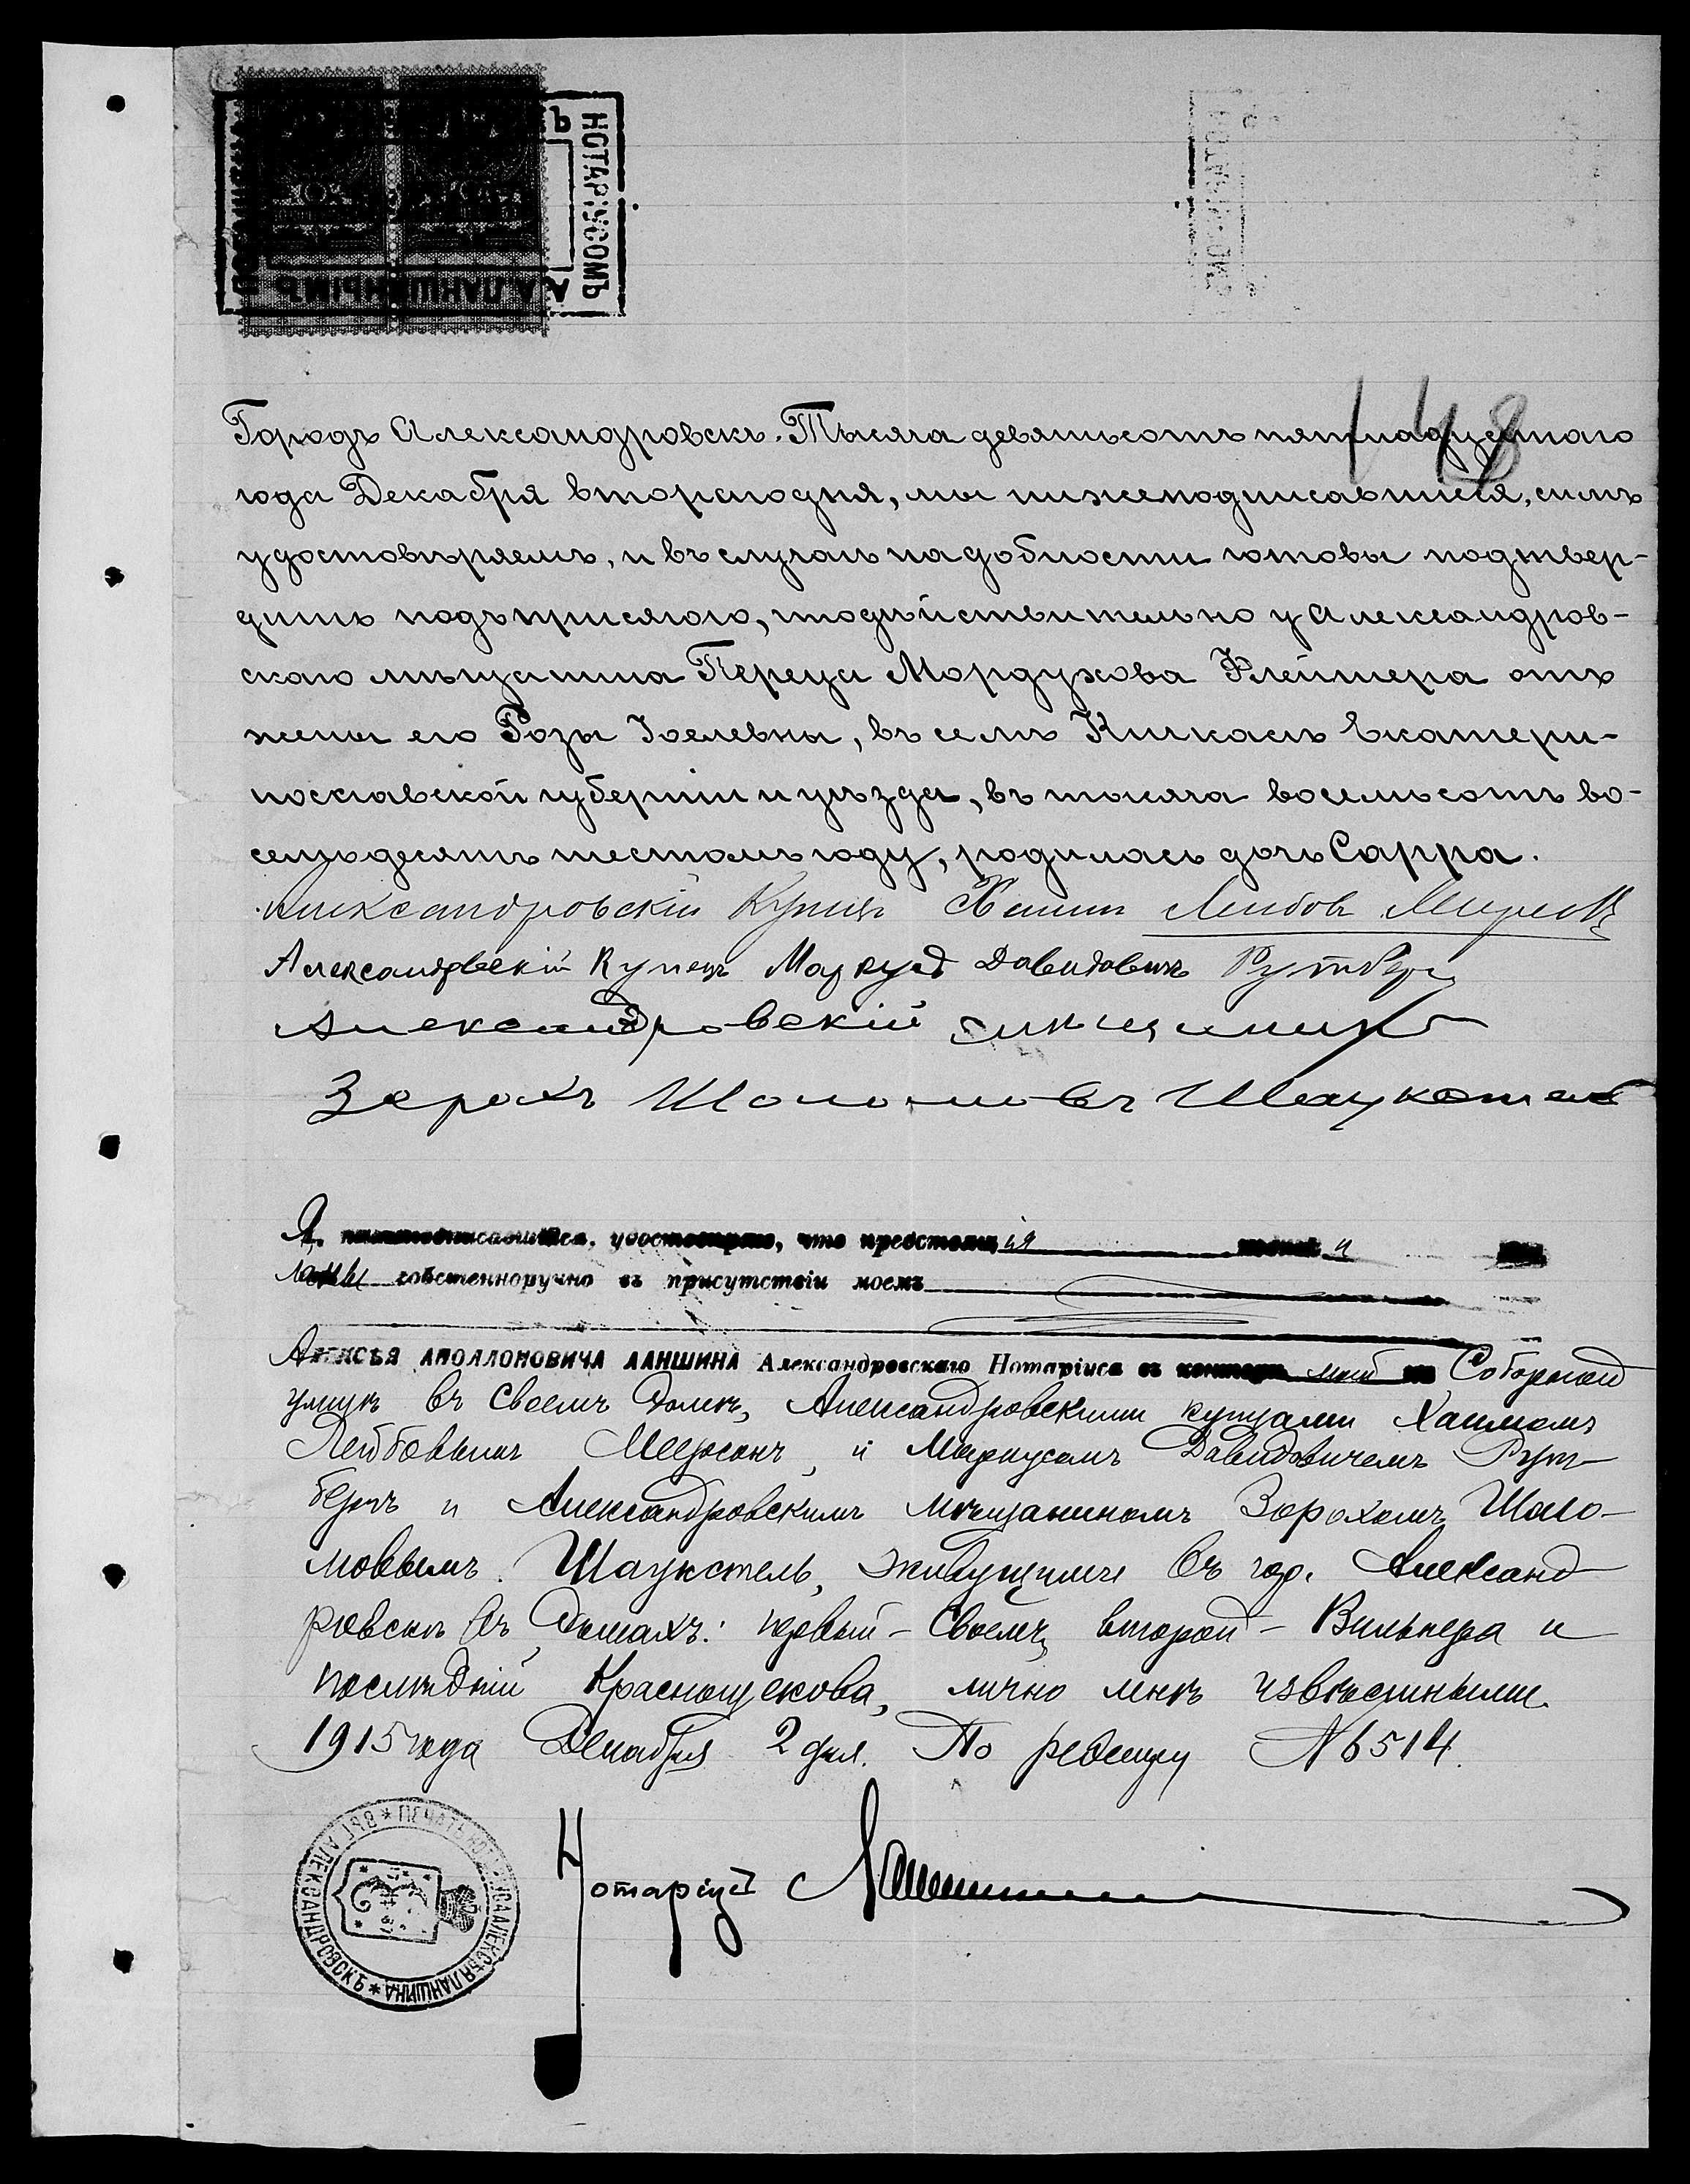 НОТАРІУСОМЪ
А. ЛАНШИНЫМЪ
148
Городъ Александровскъ. Тысяча девятьсотъ пятнадцатого
года Декабря второго дня, мы нижеподписавшіеся, симъ
удостовѣряемъ, и въ случаѣ надобности готовы подтвер-
дить подъ присягою, что дѣйствительно у Александров-
скаго мѣщанина Переца Мордухова Флейшера отъ
жены его Розы Іоелевны, въ селѣ Кичкасъ Екатери-
нославской губерніи и уѣзда, въ тысяча восемьсотъ во-
семьдесятъ шестомъ году, родилась дочь Сарра.
Александровскій Купецъ Хаимъ Лейбовъ
Александровскій Купецъ Маркусъ Давидовичъ Рутберг
Александровскій мѣщанинъ
Зорахъ Шоломовъ Шаукстель
Я, удостовѣряю, что предстоящія
собственноручно въ присутствіи моемъ
АЛЕКСѢЯ АПОЛЛОНОВИЧА ЛАНШИНА Александровскаго Нотаріуса въ конторѣ моей на Соборной
улицѣ въ своемъ домѣ, Александровскими купцами Хаимомъ
Лейбовымъ Меерсонъ, и Маркусомъ Давидовичемъ Рут-
бергъ и Александровскимъ мѣщаниномъ Зорохомъ Шоло-
мовымъ Шаукстель, живущими въ гор. Александ
ровскѣ въ домахъ: первый - своемъ, второй - Вильнера и
послѣдній Краснощекова, лично мнѣ извѣстными.
1915 года Декабря 2 дня. По реестру № 6514.
Нотаріусъ Ланшинъ
ПЕЧАТЬ НОТАРІУСА АЛЕКСѢЯ ЛАНШИНА * ВЪ Г. АЛЕКСАНДРОВСКЪ *